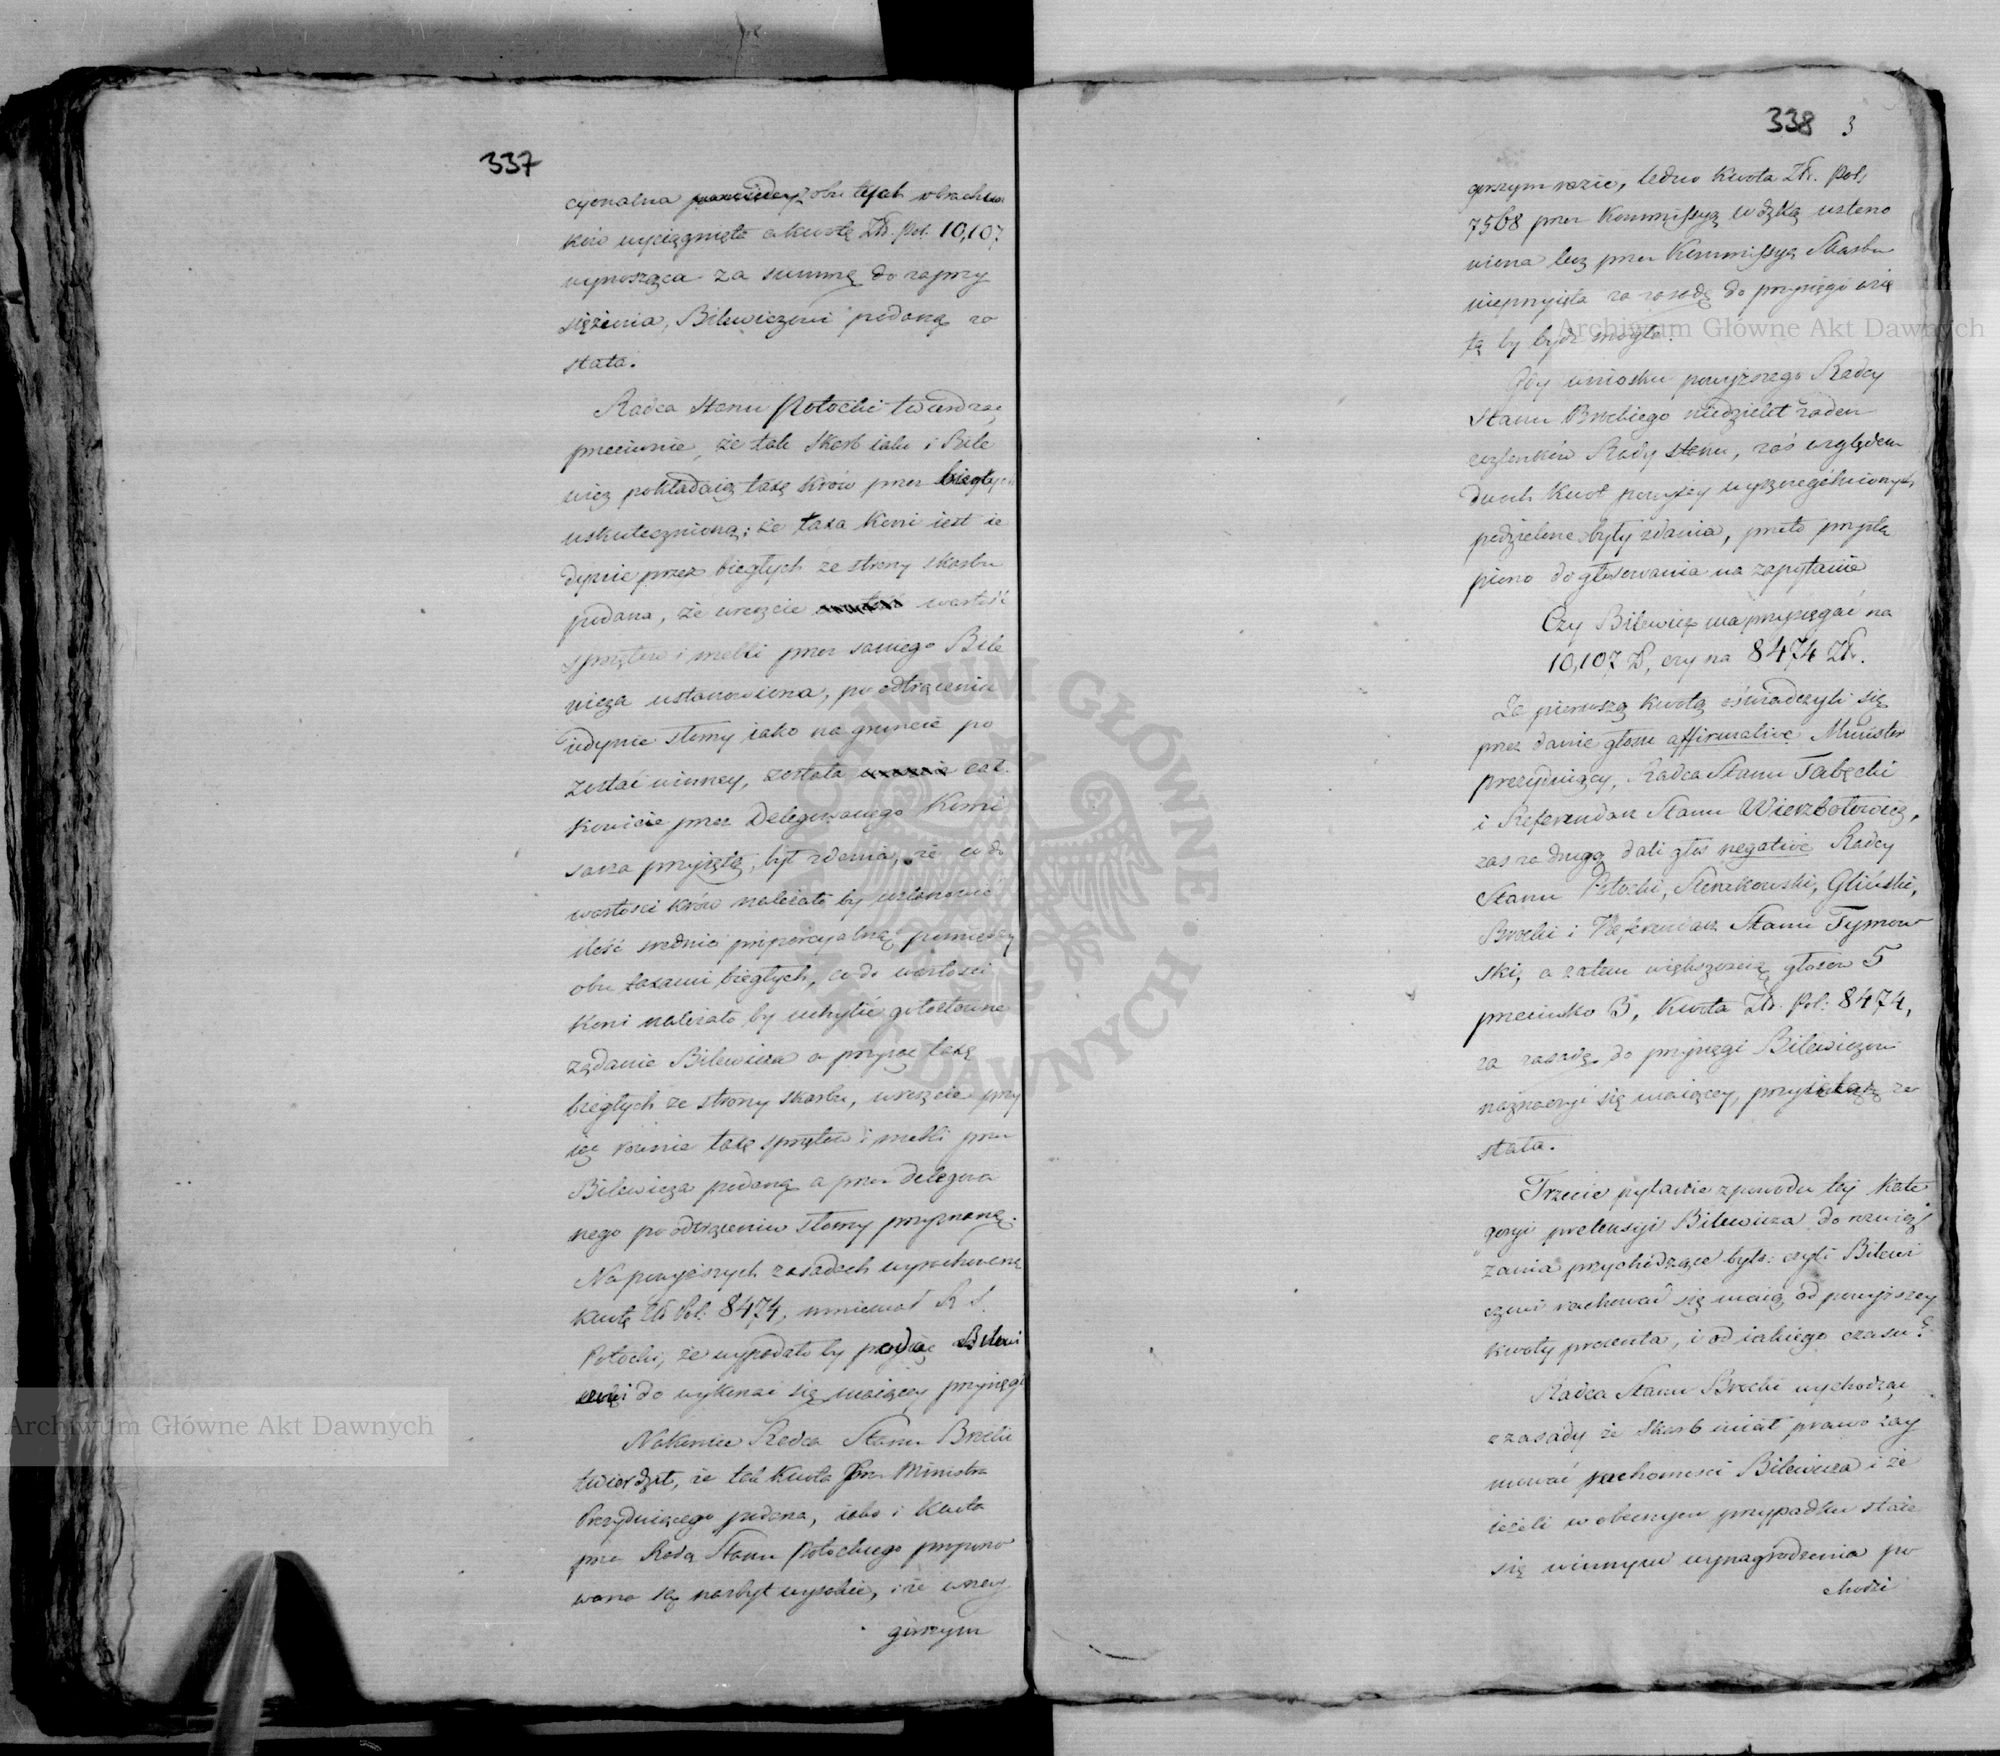 337
cyonalna obu tych obrachun
ków wyciągnięta a kwotę Zł. Pol. 10,107
wynosząca za summę do zaprzy
siężenia, Bilewiczowi podaną zo
stała.
Radca Stanu Potocki twierdząc
przeciwnie, że tak Skarb iako i Bile
wicz pokładaią taxę krów przez biegłych
uskutecznioną; że taxa koni iest ie
dynie przez biegłych ze strony skarbu
podana, że wreszcie wartość
sprzętów i mebli przez samego Bile
wicza ustanowiona, po odtrąceniu
iedynie słomy iako na gruncie po
zostać winney, została cał
kowicie przez Delegowanego Kommi
sarza przyiętą, był zdania, że co do
wartości krów należało by ustanowić
ilość srednio proporcyalną pomiędzy
obu taxami biegłych, co do wartości
koni należało by uchylić gołosłowne
żądanie Bilewicza a przyiąć taxę
biegłych ze strony skarbu, wreszcie przy
iąć równie taxę sprzętów i mebli przez
Bilewicza podaną a przez delegowa
nego po odtrąceniu słomy przyznaną.
Na powyższych zasadach wyrachowaną
kwotę Zł. Pol: 8474, mniemał R. S.
Potocki, że wypadało by podać Bilewi
czowi do wykonać się maiącey przysięgi
Nakoniec Radca Stanu Brocki
twierdził, że tak kwota przez Ministra
Prezyduiącego podana, iako i kwota
przez Radcę Stanu Potockiego propono
wana są nazbyt wysokie, i że w nay
gorszym
338 3
gorszym razie, ledwo kwota Zł. Pol:
7568 przez Kommissyą wodzką ustano
wiona lecz przez Kommissyą Skarbu
nieprzyięta za zasadę do przysięgi wzię
tą by bydź mogła.
Gdy wniosku powyższego Radcy
Stanu Brockiego niedzielił żaden
członków Rady stanu, zaś względem
dwóch kwot powyżey wyszczególnionych
podzielone były zdania, przeto przystą
piono do głosowania na zapytanie
Czy Bilewicz ma przysięgać na
10,107 Zł, czy na 8474 Zł.
Za pierwszą kwotą oświadczyli się
przez danie głosu affirmative Minister
prezyduiący, Radca Stanu Tabęcki
i Referendarz Stanu Wierzbołowicz,
zaś za drugą dali głos negative Radcy
Stanu Potocki, Staszkowski, Gliński,
Brocki i Referendarz Stanu Tymow
ski, a zatem większością głosów 5
przeciwko 3, kwota Zł. Pol: 8474,
za zasadę do przysięgi Bilewiczowi
naznaczyć się maiącey, przyięta zo
stała.
Trzecie pytanie z powodu tey kate
goryi pretensyi Bilewicza do rozwią
zania przychodzące było: czyli Bilewi
czowi rachować się maią od powyższey
kwoty procenta, i od iakiego czasu?
Radca Stanu Brocki wychodząc
z zasady że skarb miał prawo zay
mować ruchomości Bilewicza i że
ieżeli w obecnym przypadku staie
się winnym wynagrodzenia po
chodzi